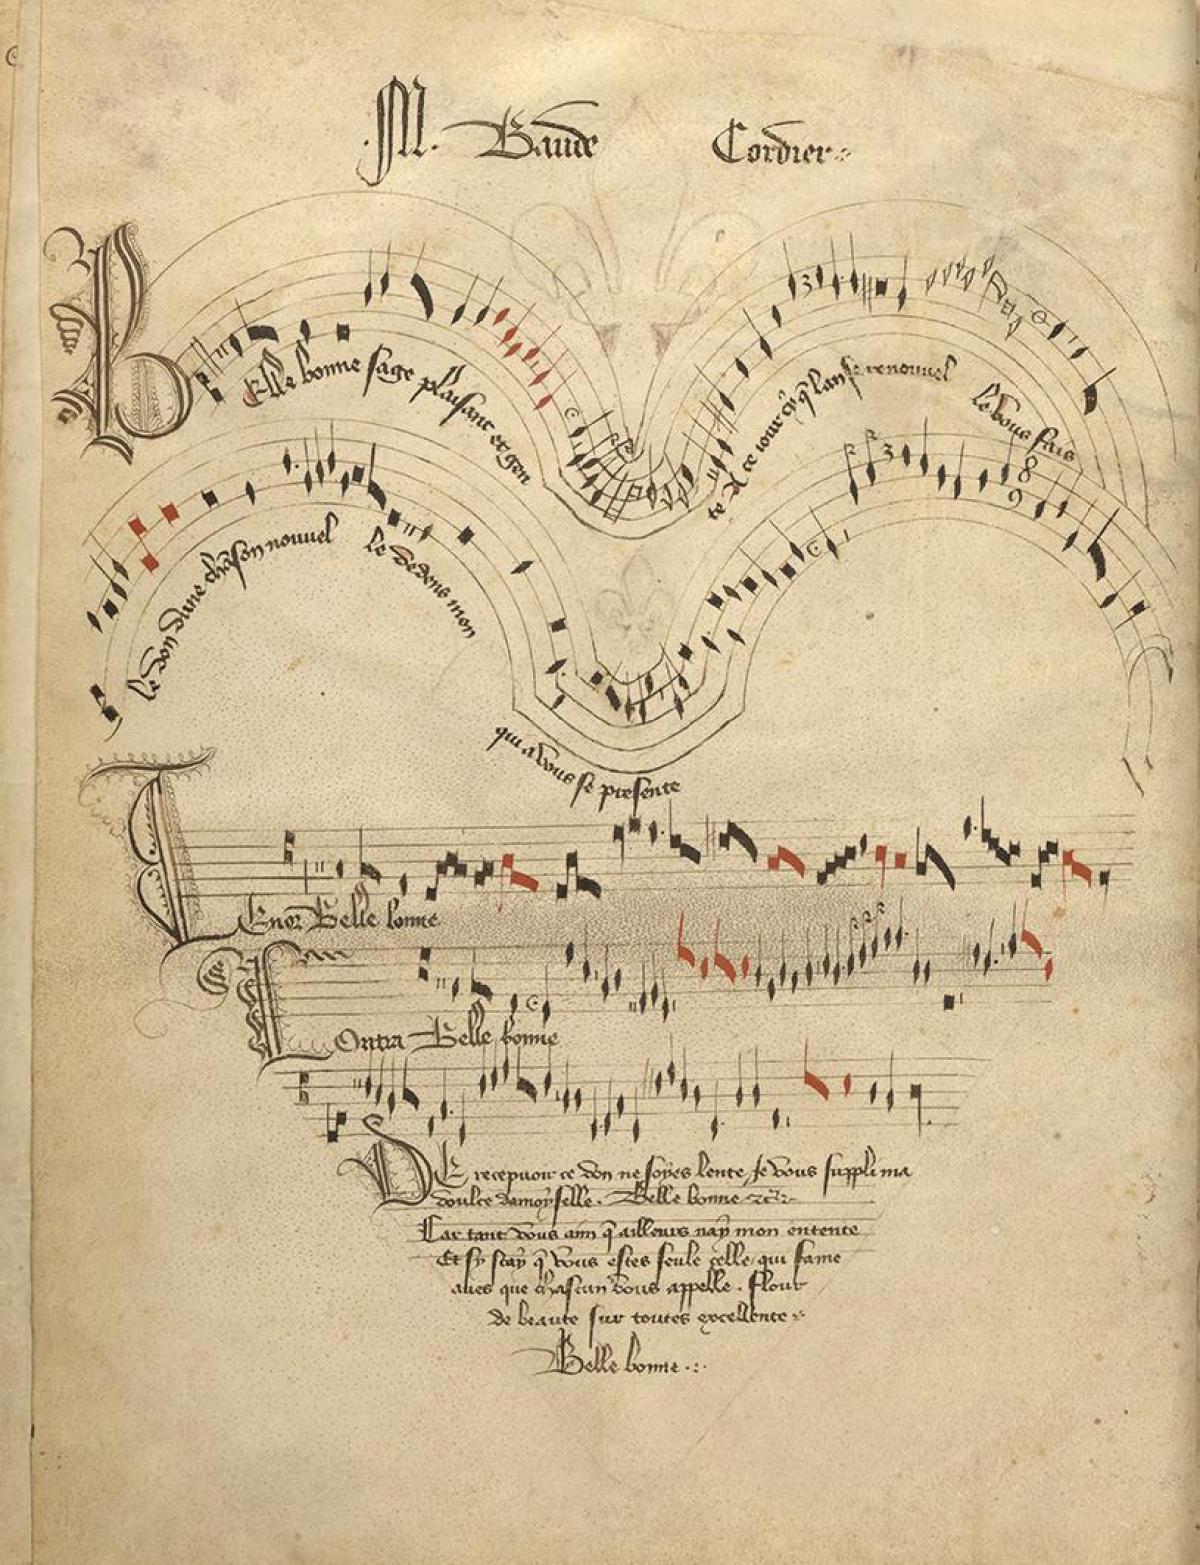 M. Baude Cordier
Belle bonne sage plaisant et gen
te A ce iour cy q̃ lan se renouuel
le vous fais
le don dune chãson nouuel
le dedens mon
qui a vous se presente
3
3
8
9
Tenor Belle bonne
Contra Belle bonne
De recepuoir ce don ne soyes lente Je vous suppli ma
doulce damoyselle. Belle bonne
Car tant vous aim q̃ ailleurs nay mon entente
Et sy scay q̃ vous estes seule celle qui fame
aues que chascun vous appelle. Flour
de beaute sur toutes excellente
Belle bonne